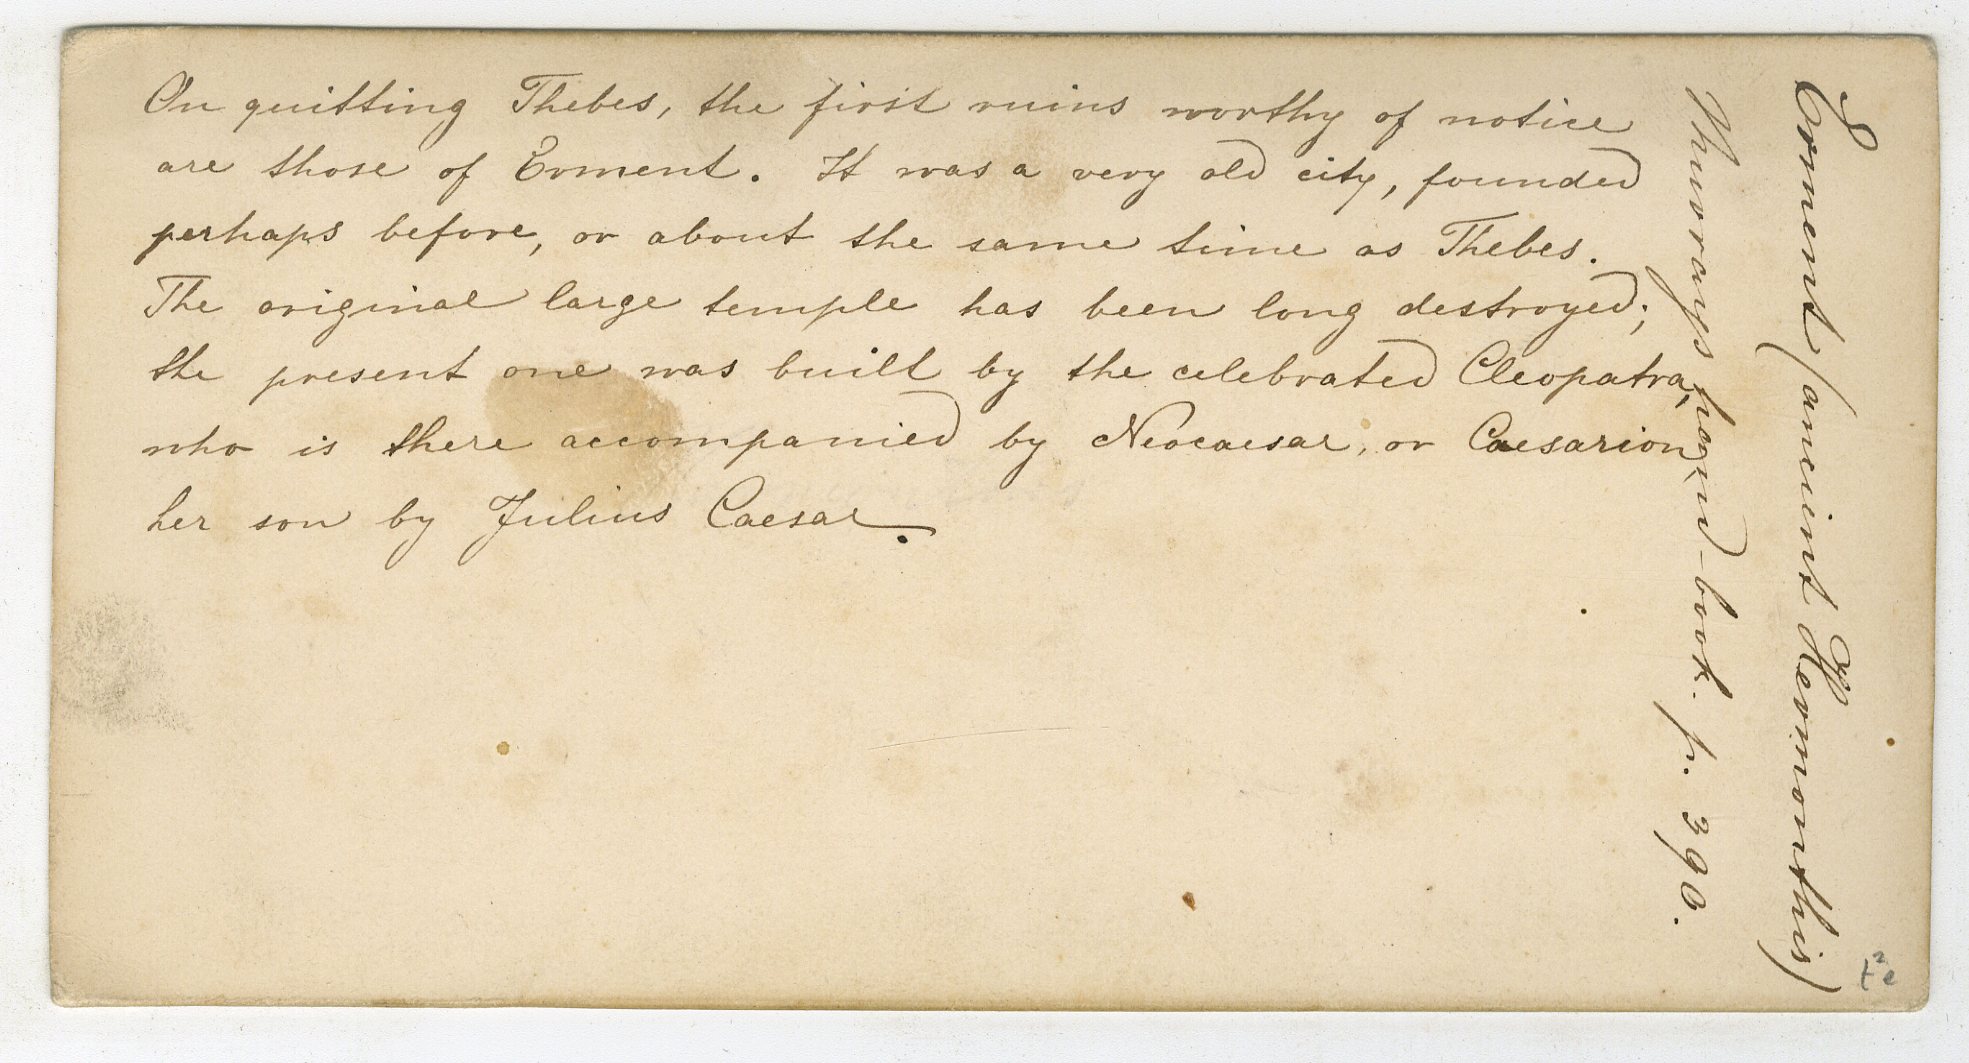 On quitting Thebes, the first ruins worthy of notice
are those of Erment. It was a very old city, founded
perhaps before, or about the same time as Thebes.
The original large temple has been long destroyed;
the present one was built by the celebrated Cleopatra,
who is there accompanied by Neocaesar, or Caesarion,
her son by Julius Caesar.
Erment (ancient Hermonthis)
Murray's hand-book. p. 390.